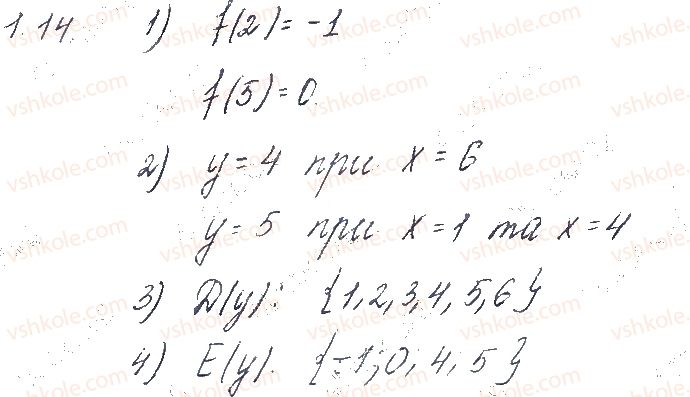 1.14. 1) f(2) = -1
f(5) = 0
2) y = 4 при x = 6
y = 5 при x = 1 та x = 4
3) D(y): {1, 2, 3, 4, 5, 6}
4) E(y). {-1; 0, 4, 5}